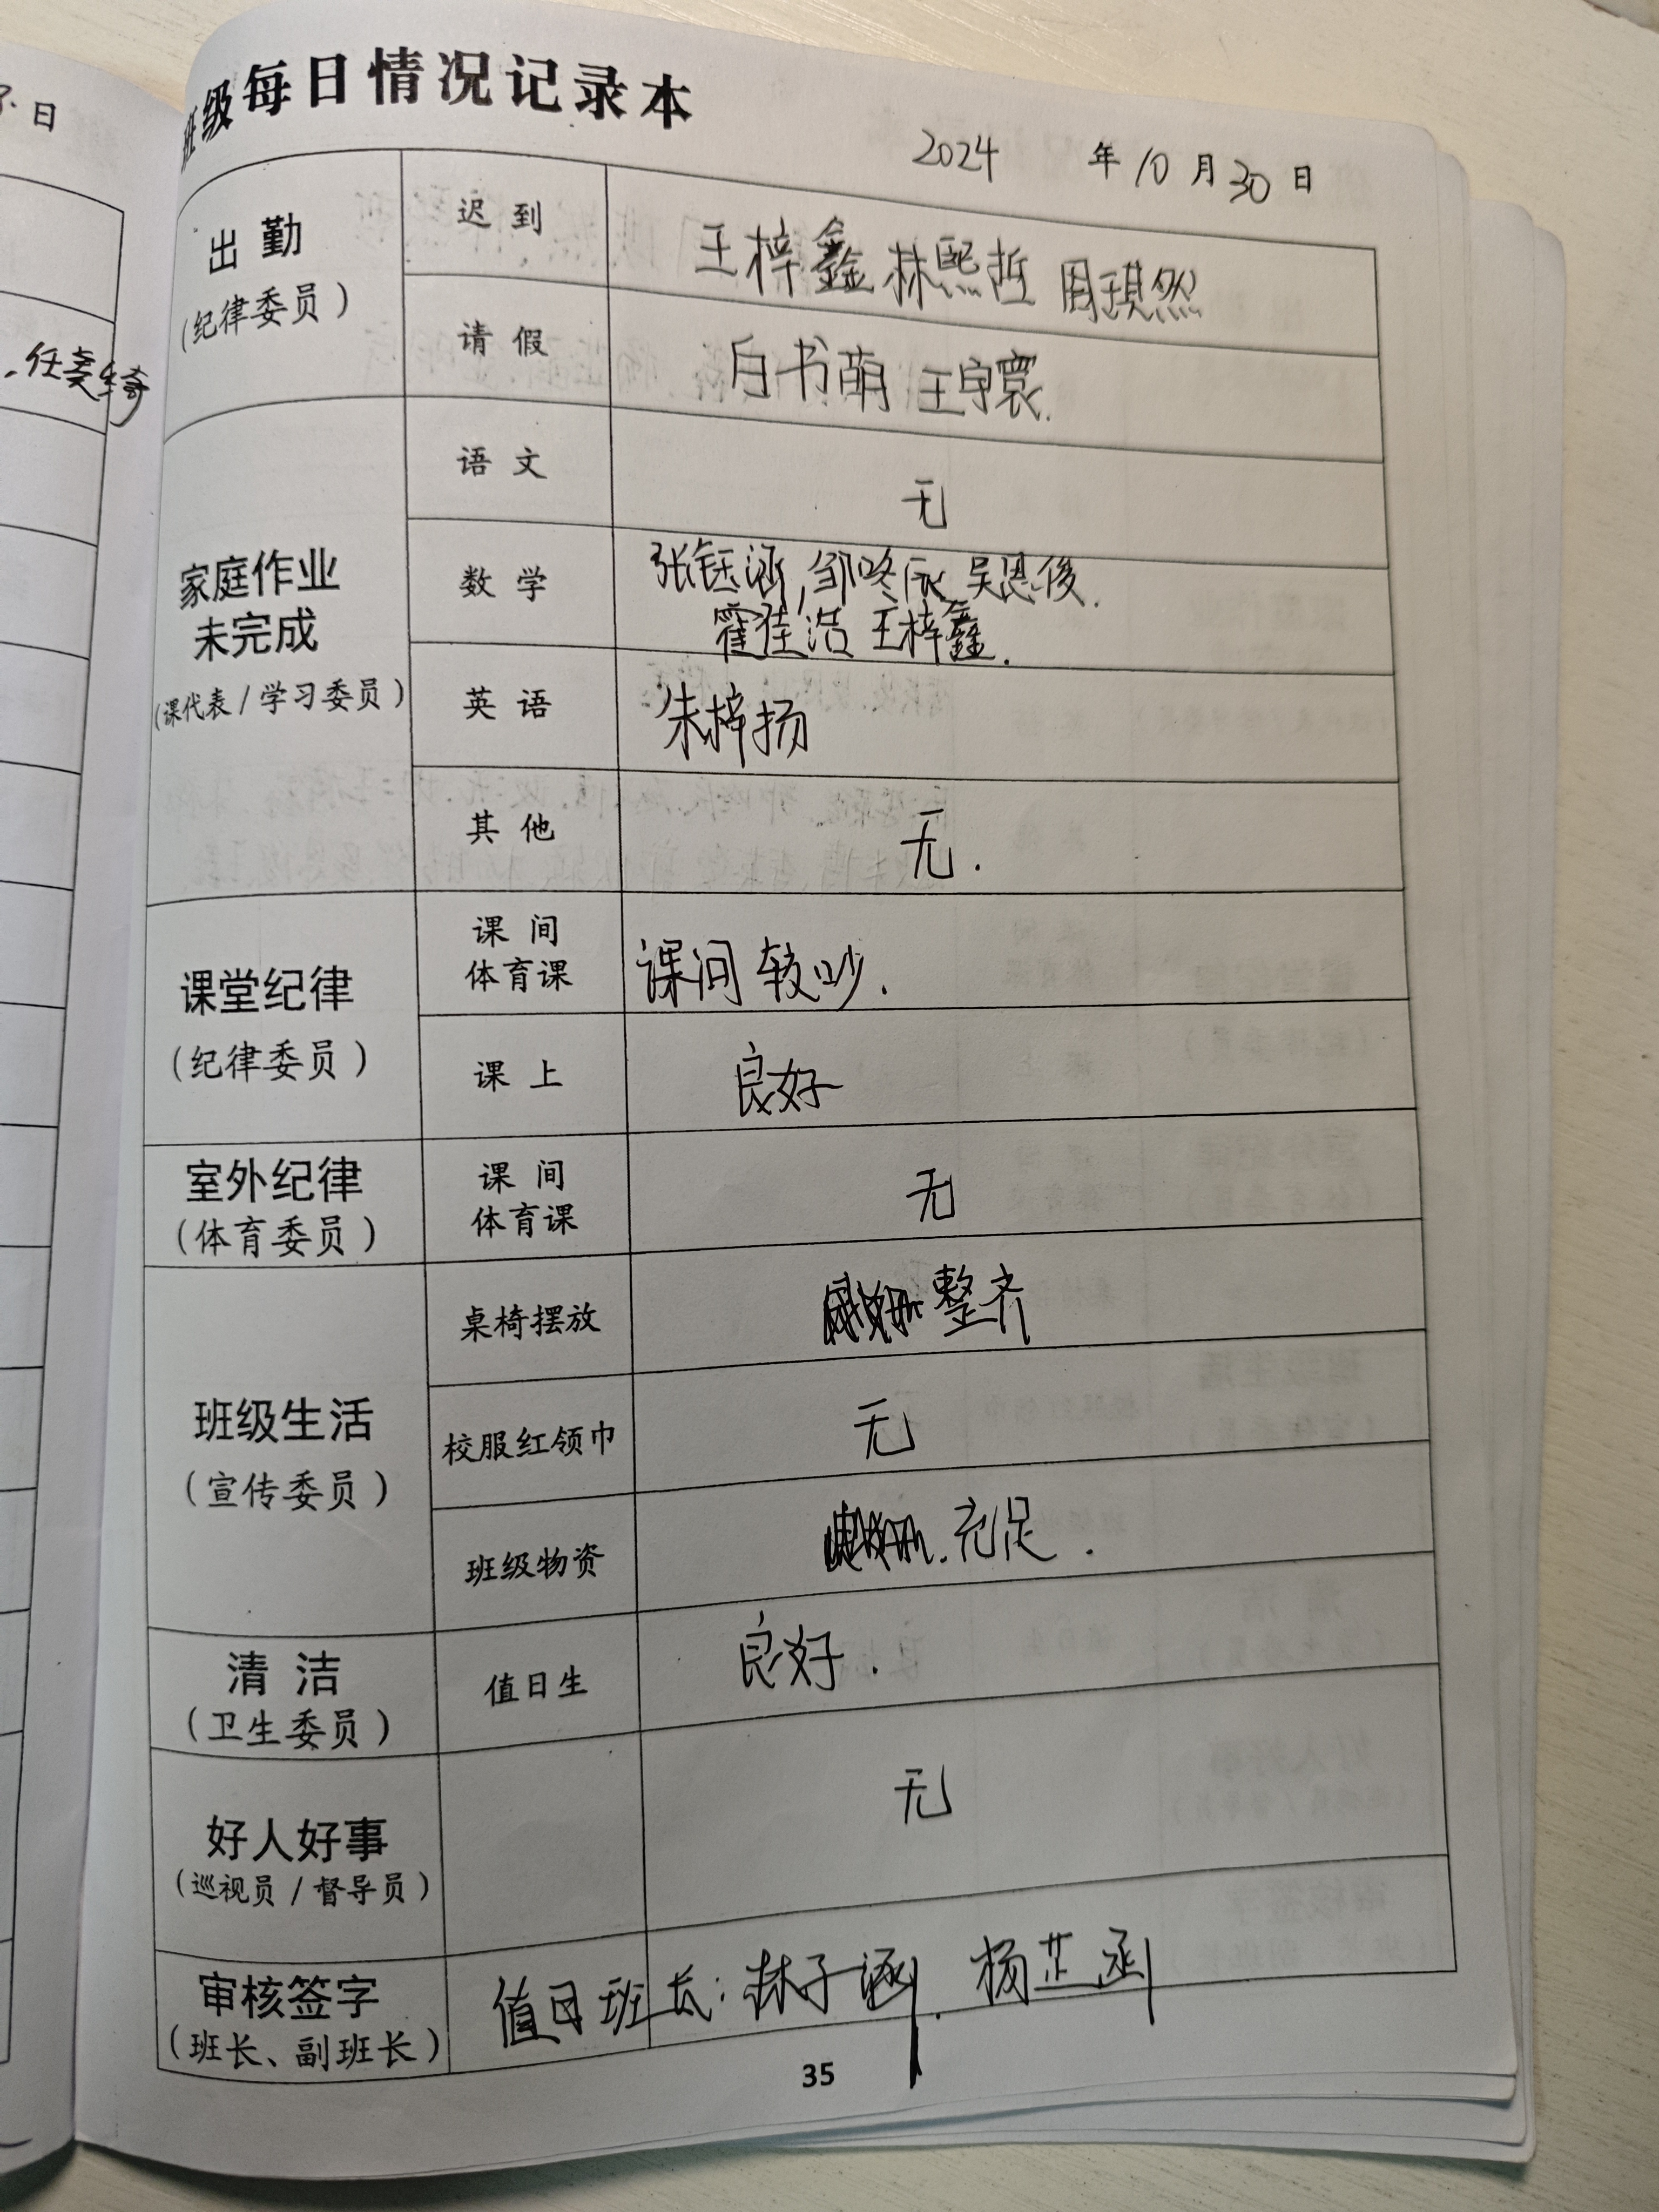 日
任
班级每日情况记录本
2024 年 10 月 30 日
出勤
(纪律委员)
迟到
王梓鑫 林熙哲 周琪然
请假
白书萌 王宇寰.
家庭作业
未完成
(课代表/学习委员)
语文
无
数学
张钰涵,邹咚辰 吴恩俊.
霍佳浩 王梓鑫.
英语
朱梓扬
其他
无.
课堂纪律
(纪律委员)
课间
体育课
课间较吵.
课上
良好
室外纪律
(体育委员)
课间
体育课
无
班级生活
(宣传委员)
桌椅摆放
整齐
校服红领巾
无
班级物资
充足.
清洁
(卫生委员)
值日生
良好.
好人好事
(巡视员/督导员)
无
审核签字
(班长、副班长)
值日班长:林子涵、杨芷函
35